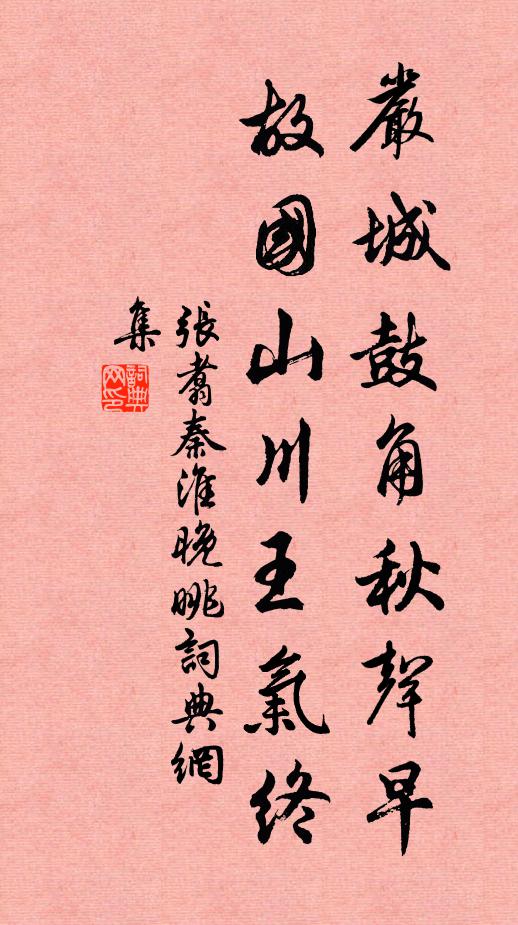 嚴城鼓角秋聲早
故國山川王氣終
張翥秦淮晚眺詞典網
集
詞典網印